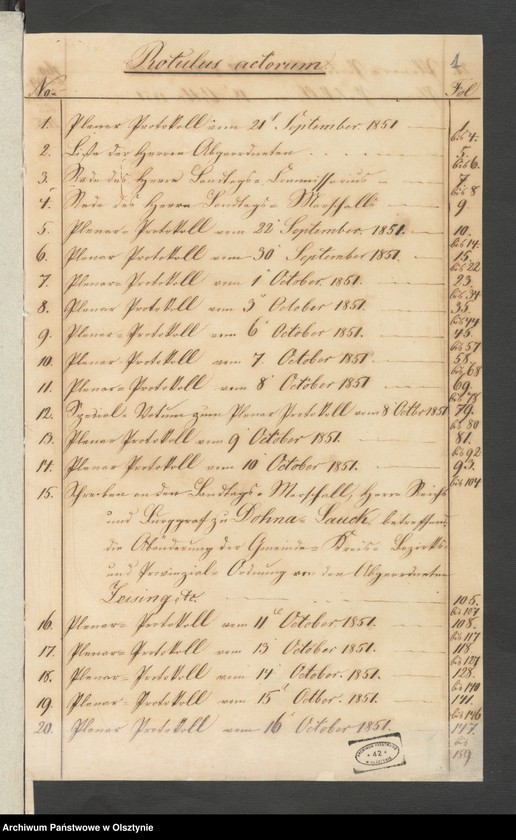 1
Rotulus actorum
No. Fol
1. Plenar Protokoll vom 21t September. 1851 1 bis 4.
2. Liste der Herren Abgeordneten 5. bis 6.
3. Rede des Herrn Landtags=Commissarius 7 bis 8
4. Rede des Herrn Landtags=Marschalls 9.
5. Plenar=Protokoll vom 22t September. 1851. 10. bis 14.
6. Plenar Protokoll vom 30t September 1851. 15. bis 22
7. Plenar=Protokoll vom 1t October. 1851. 23. bis 34
8. Plenar Protokoll vom 3t October 1851. 35. bis 44
9. Plenar=Protokoll vom 6t October 1851. 45. bis 57
10. Plenar Protokoll vom 7. October 1851 58. bis 68
11. Plenar=Protokoll vom 8t October 1851 69. bis 78
12. Spezial=Votum zum Plenar Protokoll vom 8t Octber 1851 79. bis 80
13. Plenar Protokoll vom 9t October 1851. 81. bis 92
14. Plenar Protokoll vom 10t October 1851. 93. bis 104
15. Schreiben an den Landtags=Marschall, Herrn Reichs
und Burggraf zu Dohna=Lauck, betreffend
die Abänderung der Gemeinde= Kreis= Bezirks=
und Provinzial=Ordnung von den Abgeordneten
105. bis 107
16. Plenar=Protokoll vom 11t October 1851. 108. bis 117
17. Plenar=Protokoll vom 13t October 1851. 118. bis 127
18. Plenar=Protokoll vom 14t October. 1851. 128. bis 140
19. Plenar=Protokoll vom 15t Octber. 1851. 141. bis 146
20. Plenar Protokoll vom 16t October 1851. 147. bis 159
42
Archiwum Państwowe w Olsztynie